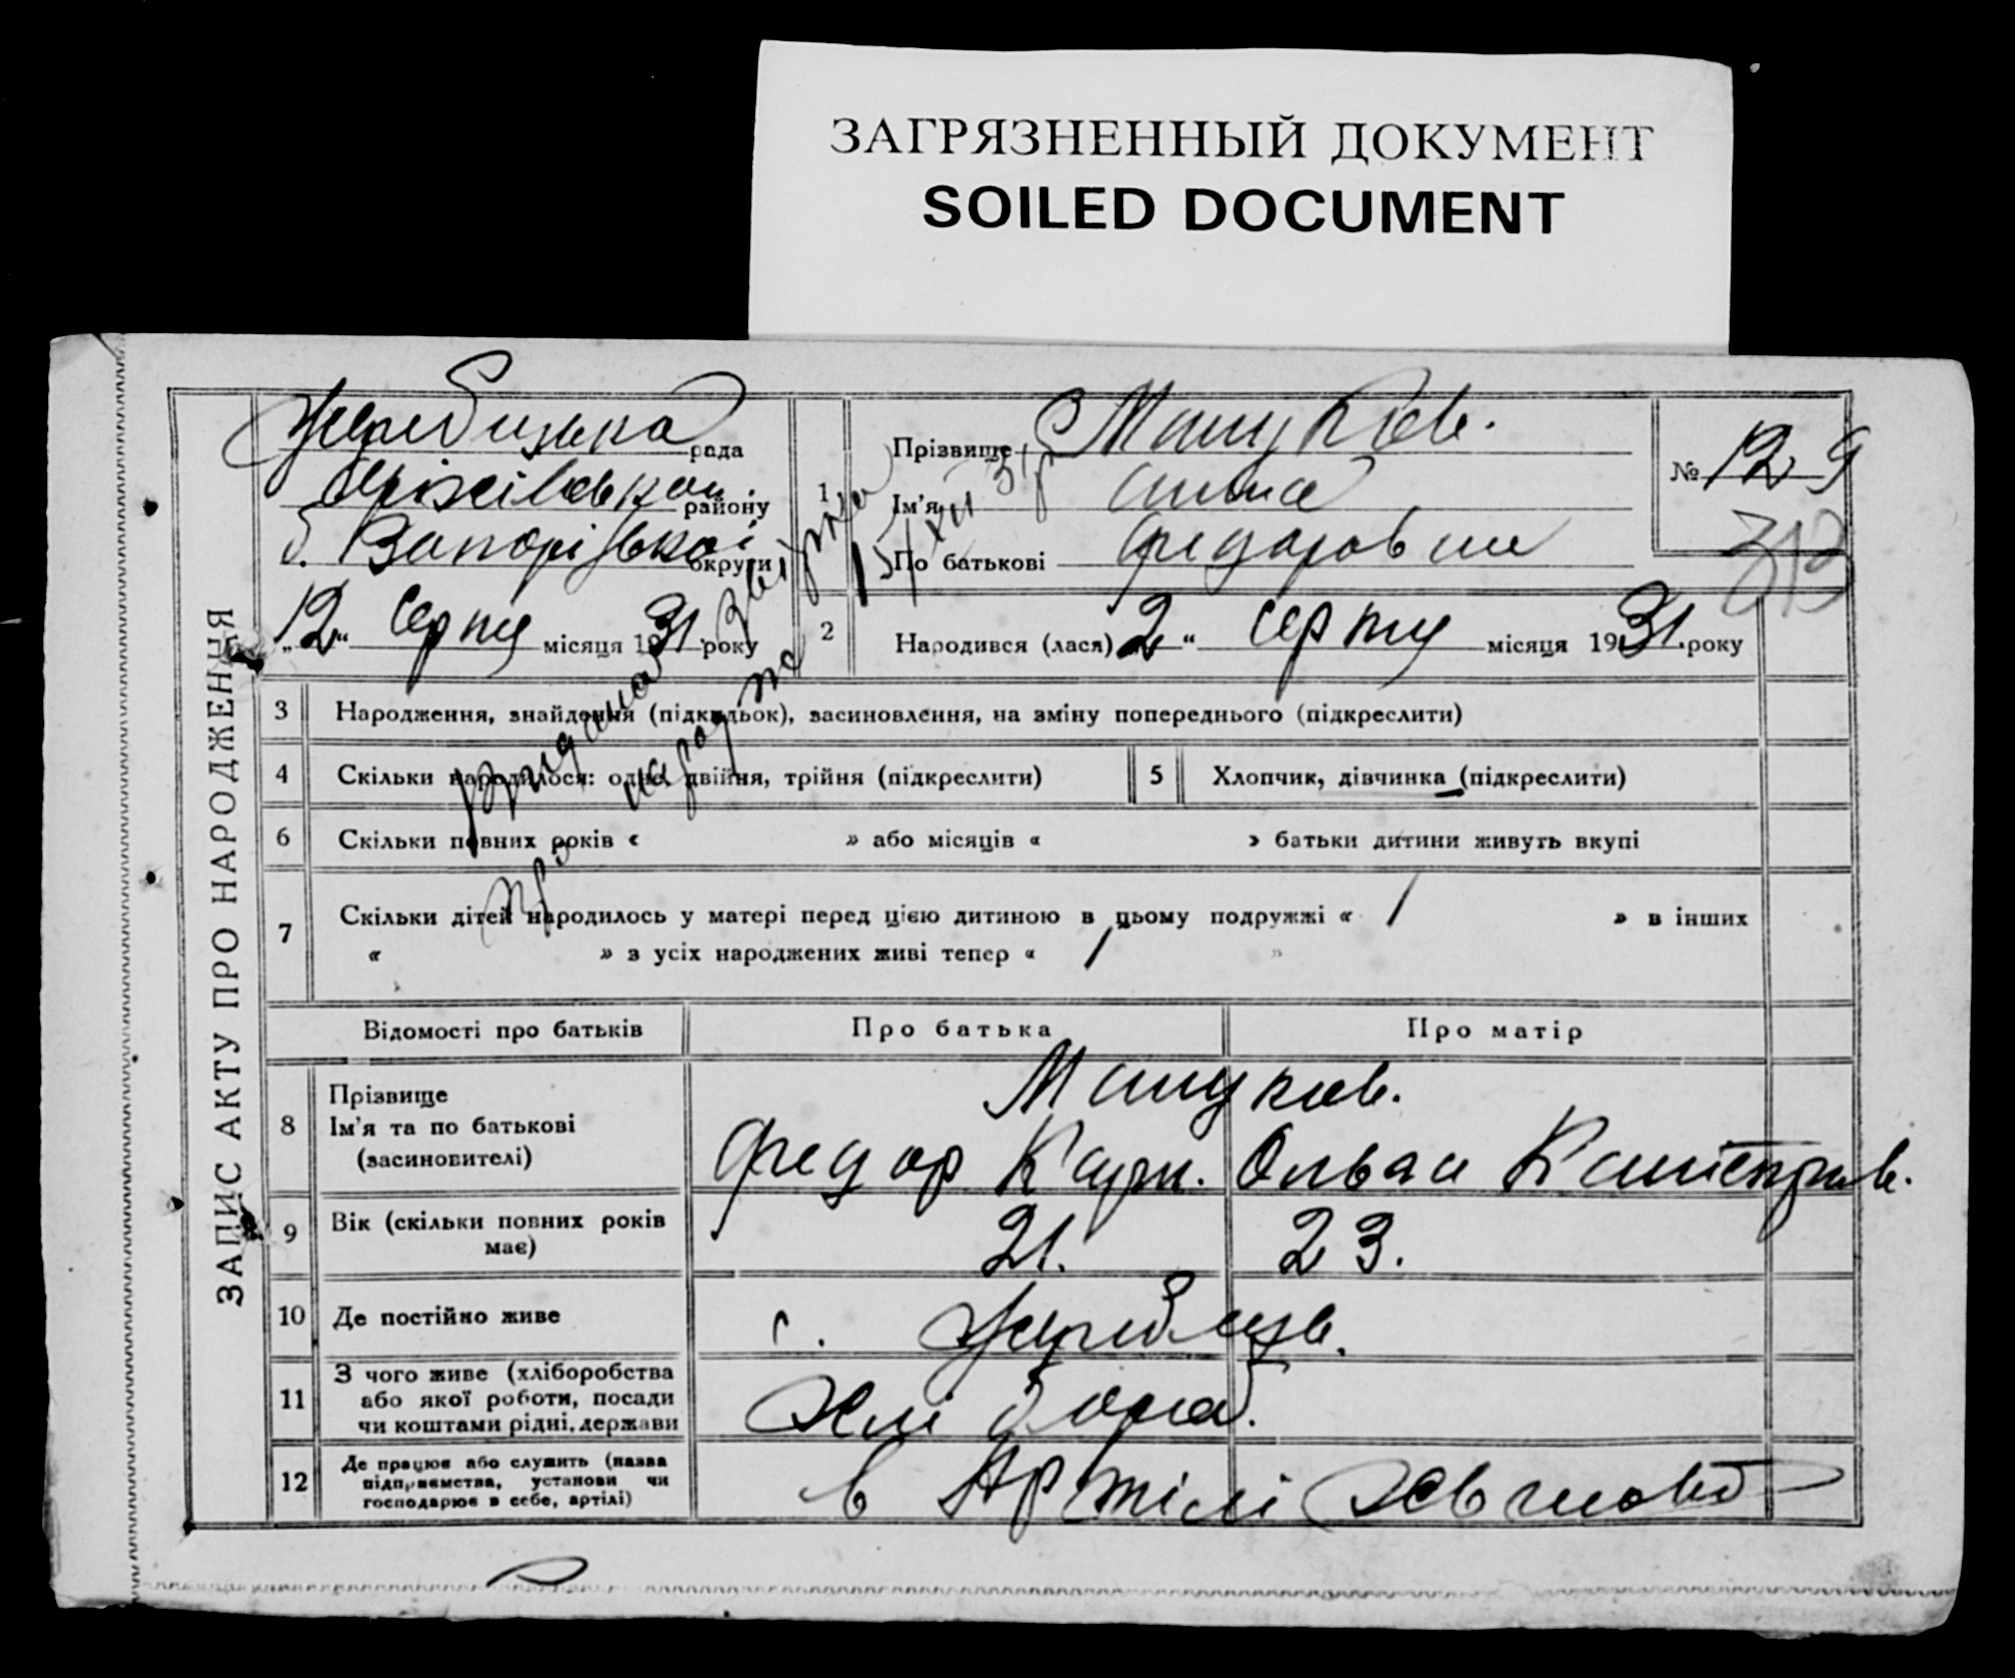 ЗАГРЯЗНЕННЫЙ ДОКУМЕНТ
SOILED DOCUMENT
ЗАПИС АКТУ ПРО НАРОДЖЕННЯ
Жеребецька рада
Оріхівськ район.
району
б. Запорізької
округи
"12" серпня місяця 1931 року
1
Прізвище
Ім'я Анна
По батькові Федоровна
№ 129
313
15/XII 31 р
2
Народився (лася) 2 " серпня місяця 1931. року
3 Народження, знайдення (підкидьок), засиновлення, на зміну попереднього (підкреслити)
4 Скільки народилося: одно, двійня, трійня (підкреслити)
5 Хлопчик, дівчинка (підкреслити)
6 Скільки повних років « » або місяців « » батьки дитини живуть вкупі
7 Скільки дітей народилось у матері перед цією дитиною в цьому подружжі « 1 » в інших
« » з усіх народжених живі тепер « 1 »
Відомості про батьків Про батька Про матір
8 Прізвище
Ім'я та по батькові
(засиновителі)
Федор Ольга
9 Вік (скільки повних років
має)
21. 23.
10 Де постійно живе с. Жеребець.
11 З чого живе (хліборобства
або якої роботи, посади
чи коштами рідні, держави
Хлібороб.
12 Де працює або служить (назва
підприємства, установи чи
господарює в себе, артілі)
в Артілі